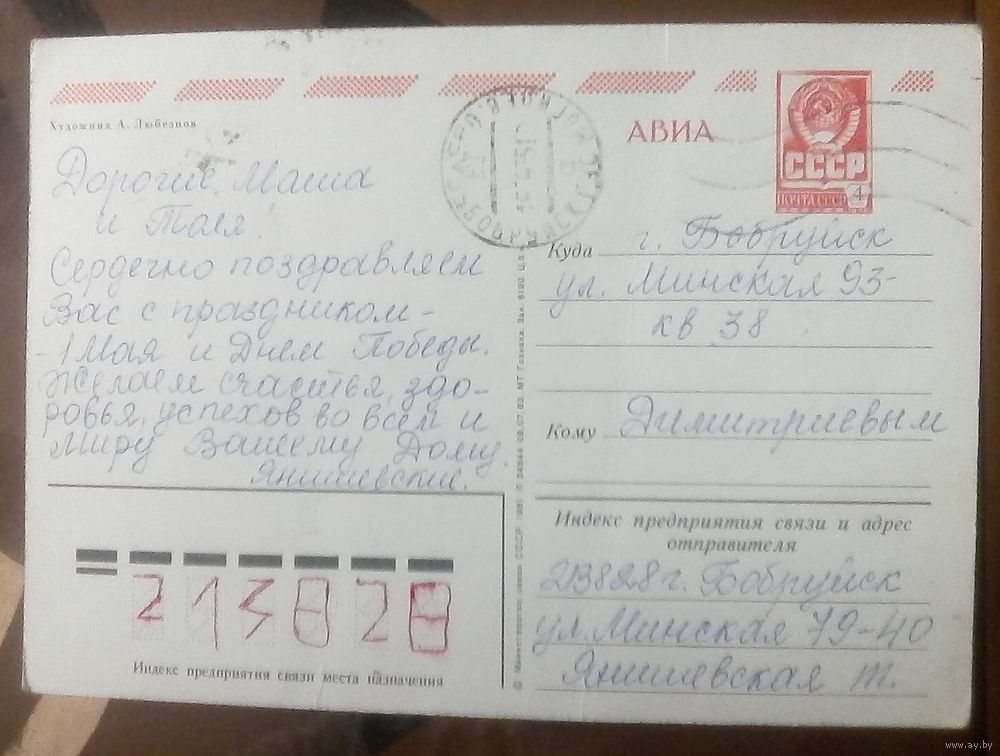 Художник А. Любезнов
АВИА
СССР
ПОЧТА СССР 4
БОБРУЙСК
Дорогие Маша
и Таня!
Сердечно поздравляем
Вас с праздником –
- 1 Мая и Днем Победы.
Желаем счастья, здо-
ровья, успехов во всём и
миру Вашему Дому.
Янишевские.
Куда г. Бобруйск
ул. Минская 93-
кв 38
Кому Димитриевым
Индекс предприятия связи и адрес
отправителя
213828 г. Бобруйск
ул. Минская 79-40
Янишевская т.
213828
Индекс предприятия связи места назначения
© Министерство связи СССР. 1980
www.ay.by